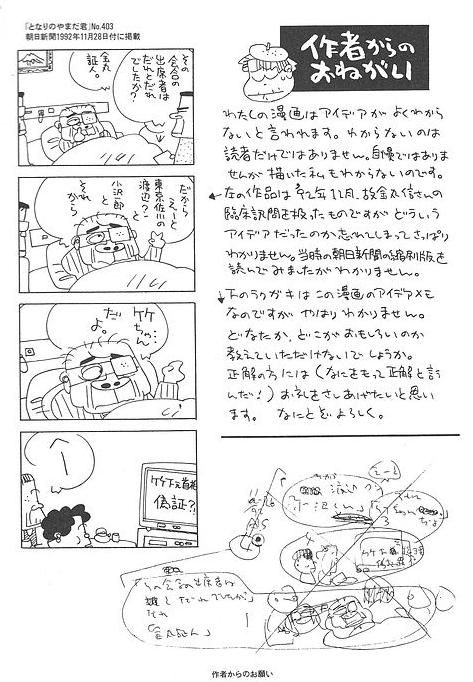 『となりのやまだ君』No.403
朝日新聞1992年11月28日付に掲載
金丸
証人。
その
会合の
出席者は
だれとだれ
でしたか？
だから
えーと
東京佐川の
渡辺？と
小沢一郎
と
それ
から
竹
ちゃん…
だ
よ。
竹下元首相
偽証？
作者からの
おねがい
わたくしの漫画はアイデアがよくわから
ないと言われます。わからないのは
読者だけではありません。自慢ではありま
せんが描いた私もわからないのです。
左の作品は92年11月、故金丸信さんの
臨床訊問を扱ったものですがどういう
アイデアだったのか忘れてしまってさっぱり
わかりません。当時の朝日新聞の縮刷版を
読んでみましたがわかりません。
下のラクガキはこの漫画のアイデアメモ
なのですがやはりわかりません。
どなたか、どこがおもしろいのか
教えていただけないでしょうか。
正解の方には（なにをもって正解と言う
んだ！）お礼をさしあげたいと思い
ます。 なにとぞよろしく。
その会合の出席者は
誰と だれでしたか
作者からのお願い